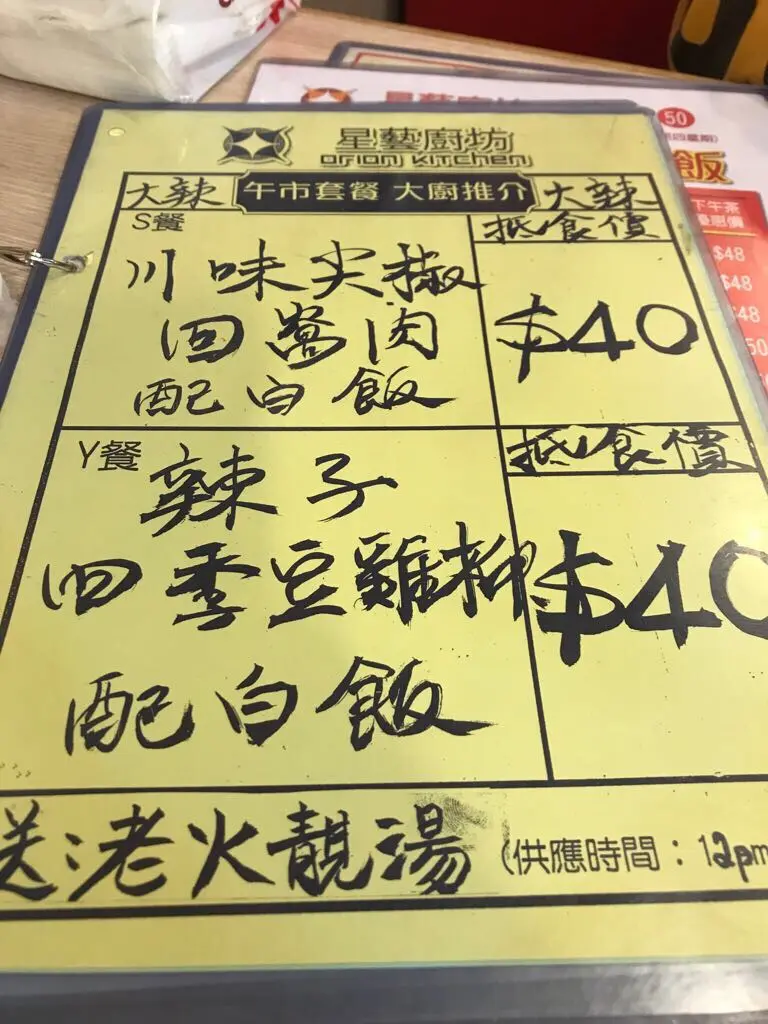 50
飯
下午茶
優惠價
$48
$48
$48
星藝廚坊
ORION KITCHEN
大辣 午市套餐 大廚推介 大辣
S餐
抵食價
川味尖椒
回窩肉
配白飯
$40
Y餐
抵食價
辣子
四季豆雞柳
配白飯
$40
送:老火靚湯 (供應時間:12pm